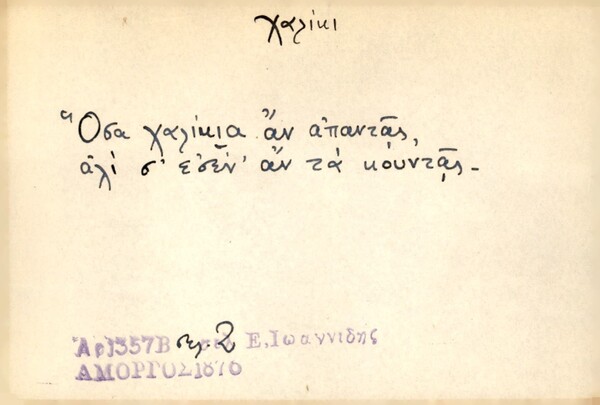 χαλίκι
Ὅσα χαλίκια ἂν ἀπαντᾷς,
ἀλὶ σ' ἐσὲν' ἂν τὰ κουντᾷς.-
Ἀρ 1357Β σελ. 2 Ε, Ἰωαννίδης
ΑΜΟΡΓΟΣ 1876